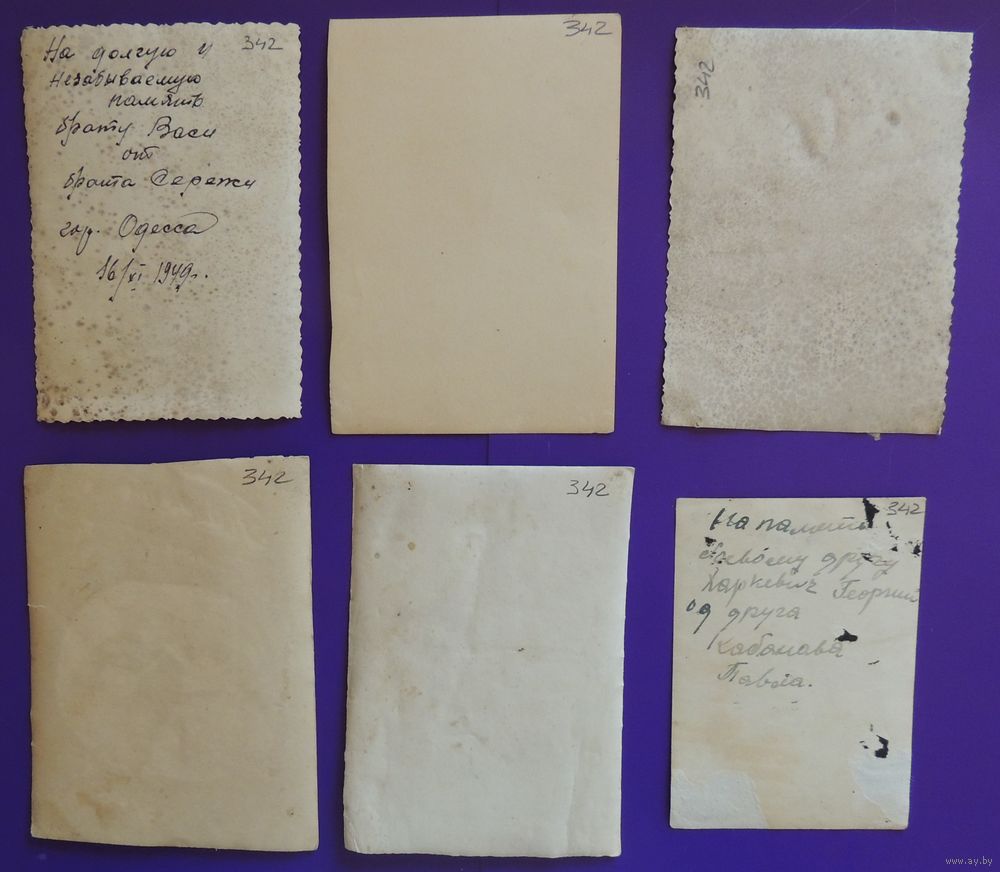 На долгую и 342
незабываемую
память
брату Васи
от
брата Сережи
гор. Одесса
16/XI 1949г.
342
342
342
342
342
На память
боевому другу
Харкевич Георгий
од друга
Кабанава
Павла.
www.ay.by